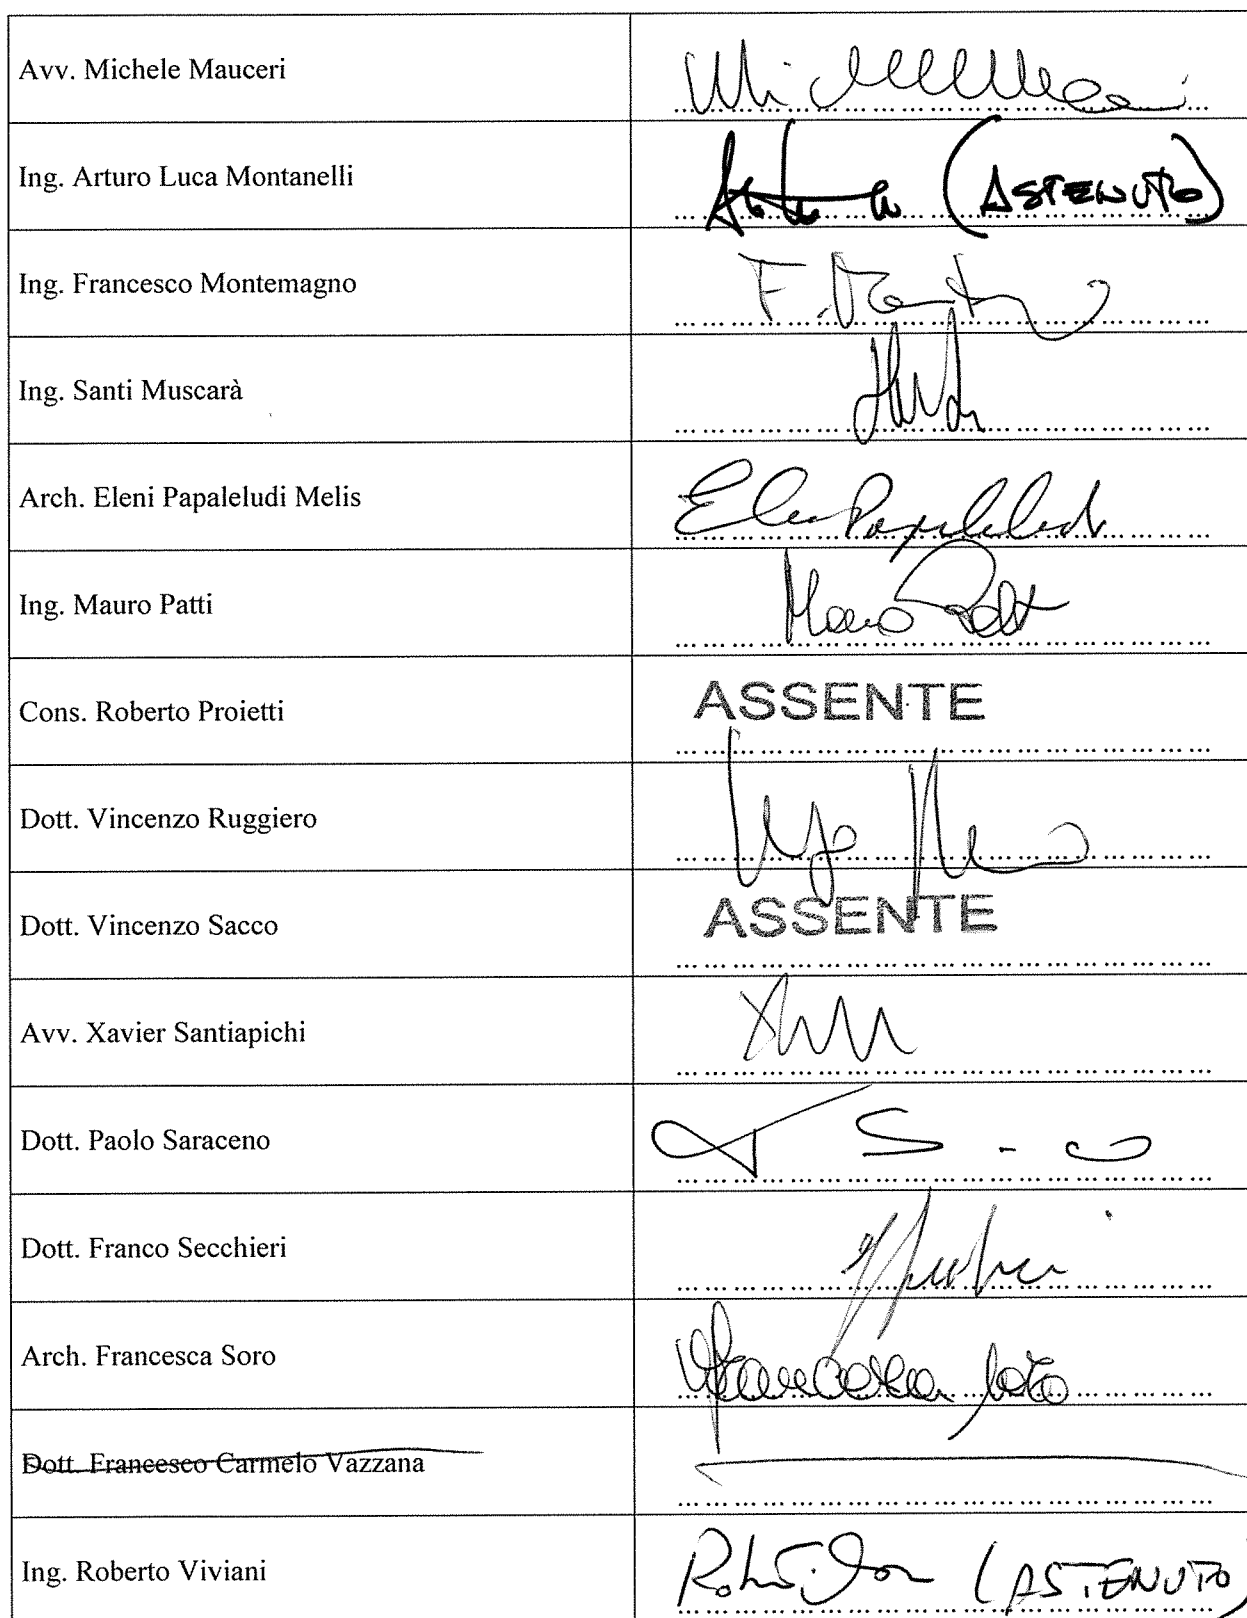 Avv. Michele Mauceri
Ing. Arturo Luca Montanelli (ASTENUTO)
Ing. Francesco Montemagno F.
Ing. Santi Muscarà
Arch. Eleni Papaleludi Melis
Ing. Mauro Patti
Cons. Roberto Proietti ASSENTE
Dott. Vincenzo Ruggiero
Dott. Vincenzo Sacco ASSENTE
Avv. Xavier Santiapichi
Dott. Paolo Saraceno
Dott. Franco Secchieri
Arch. Francesca Soro Francesca Soro
Dott. Francesco Carmelo Vazzana
Ing. Roberto Viviani (ASTENUTO)